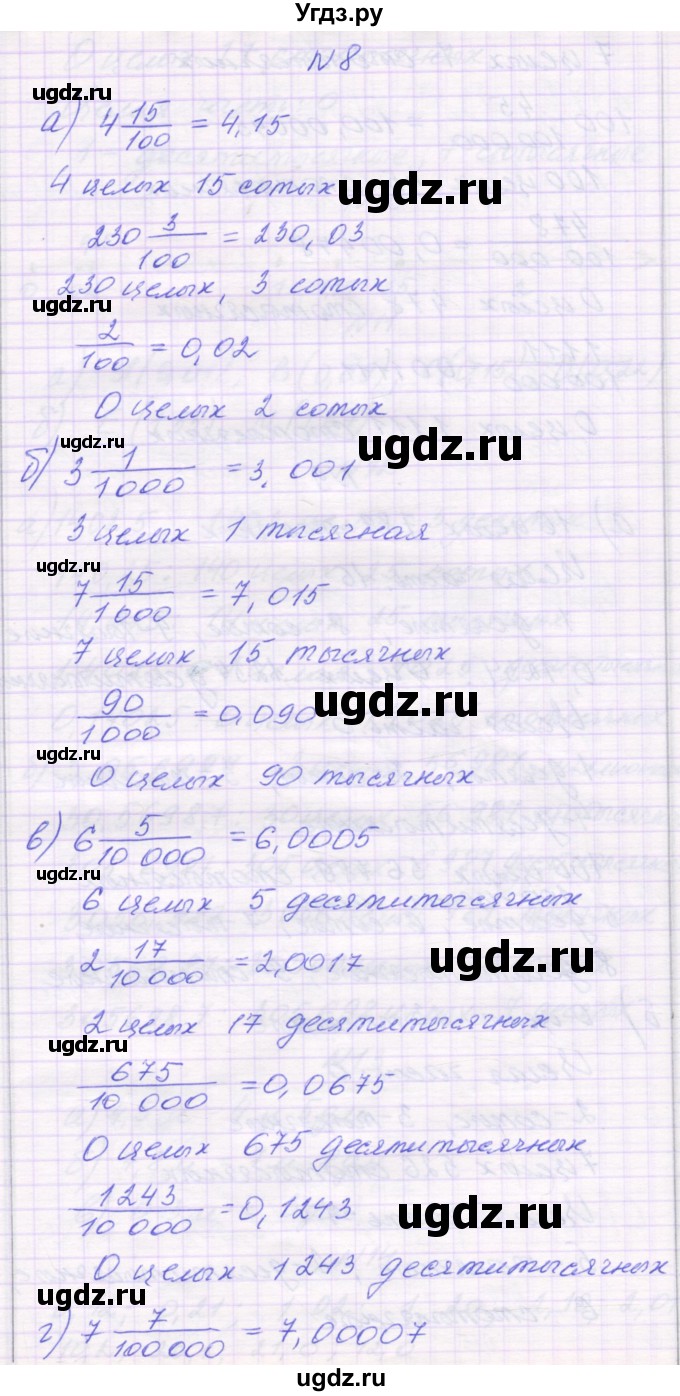 Угдз.ру
N 8
ugdz.ru
а) 4 15/100 = 4,15
4 целых 15 сотых
ugdz.ru
230 3/100 = 230,03
230 целых, 3 сотых
ugdz.ru
2/100 = 0,02
0 целых 2 сотых
ugdz.ru
ugdz.ru
б) 3 1/1000 = 3,001
3 целых 1 тысячная
ugdz.ru
7 15/1000 = 7,015
7 целых 15 тысячных
ugdz.ru
90/1000 = 0,090
ugdz.ru
0 целых 90 тысячных
в) 6 5/10 000 = 6,0005
ugdz.ru
6 целых 5 десятитысячных
2 17/10 000 = 2,0017
ugdz.ru
2 целых 17 десятитысячных
ugdz.ru
675/10 000 = 0,0675
0 целых 675 десятитысячных
ugdz.ru
1243/10 000 = 0,1243
ugdz.ru
0 целых 1243 десятитысячных
ugdz.ru
г) 7 7/100 000 = 7,00007
ugdz.ru